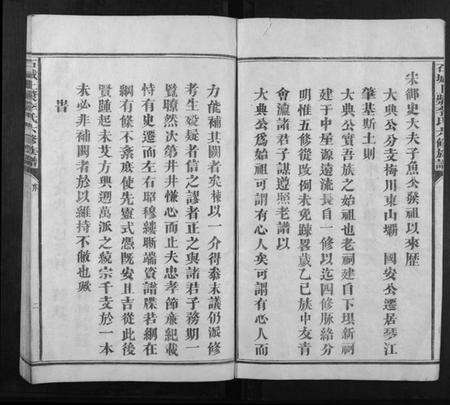 宋御史大夫子魚公發祖以來歷
大典公分支梅川東山壩 國安公遷居琴江
肇基斯土則
大典公實吾族之始祖也老祠建自下壩新祠
建于中屋源遠流長自一修以迄四修脉絡分
明惟五修從敗倒未免疎畧歲乙巳族中友青
會濂諸君子謀遵照老譜以
大典公爲始祖可謂有心人矣可謂有心人而
力能補其闕者矣棟以一介得叅末議仍派修
考生歿疑者信之謬者正之與諸君子務期一
覽瞭然次第井井慊心而止夫忠孝節廉紀載
恃有史遷而左右昭穆續斷端資譜牒若網在
綱有條不紊庶使先靈式憑既安且吉從此後
賢踵起未艾方興遡萬派之竸宗千支於一本
未必非補闕者於以維持不敝也歟
旹
序
二